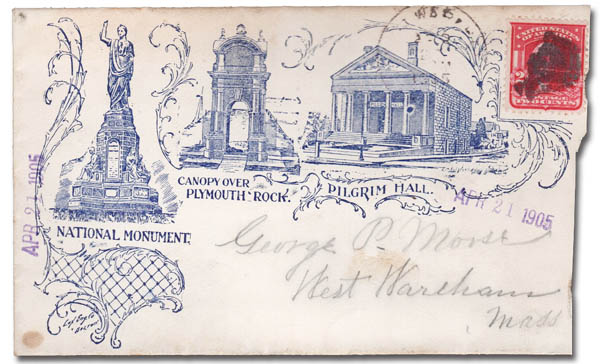 UNITED STATES
OF AMERICA
2 2
TWO CENTS
APR 21 1905
CANOPY OVER
PLYMOUTH ROCK.
PILGRIM HALL.
NATIONAL MONUMENT.
APR 21 1905
George P. Morse
West Wareham
Mass